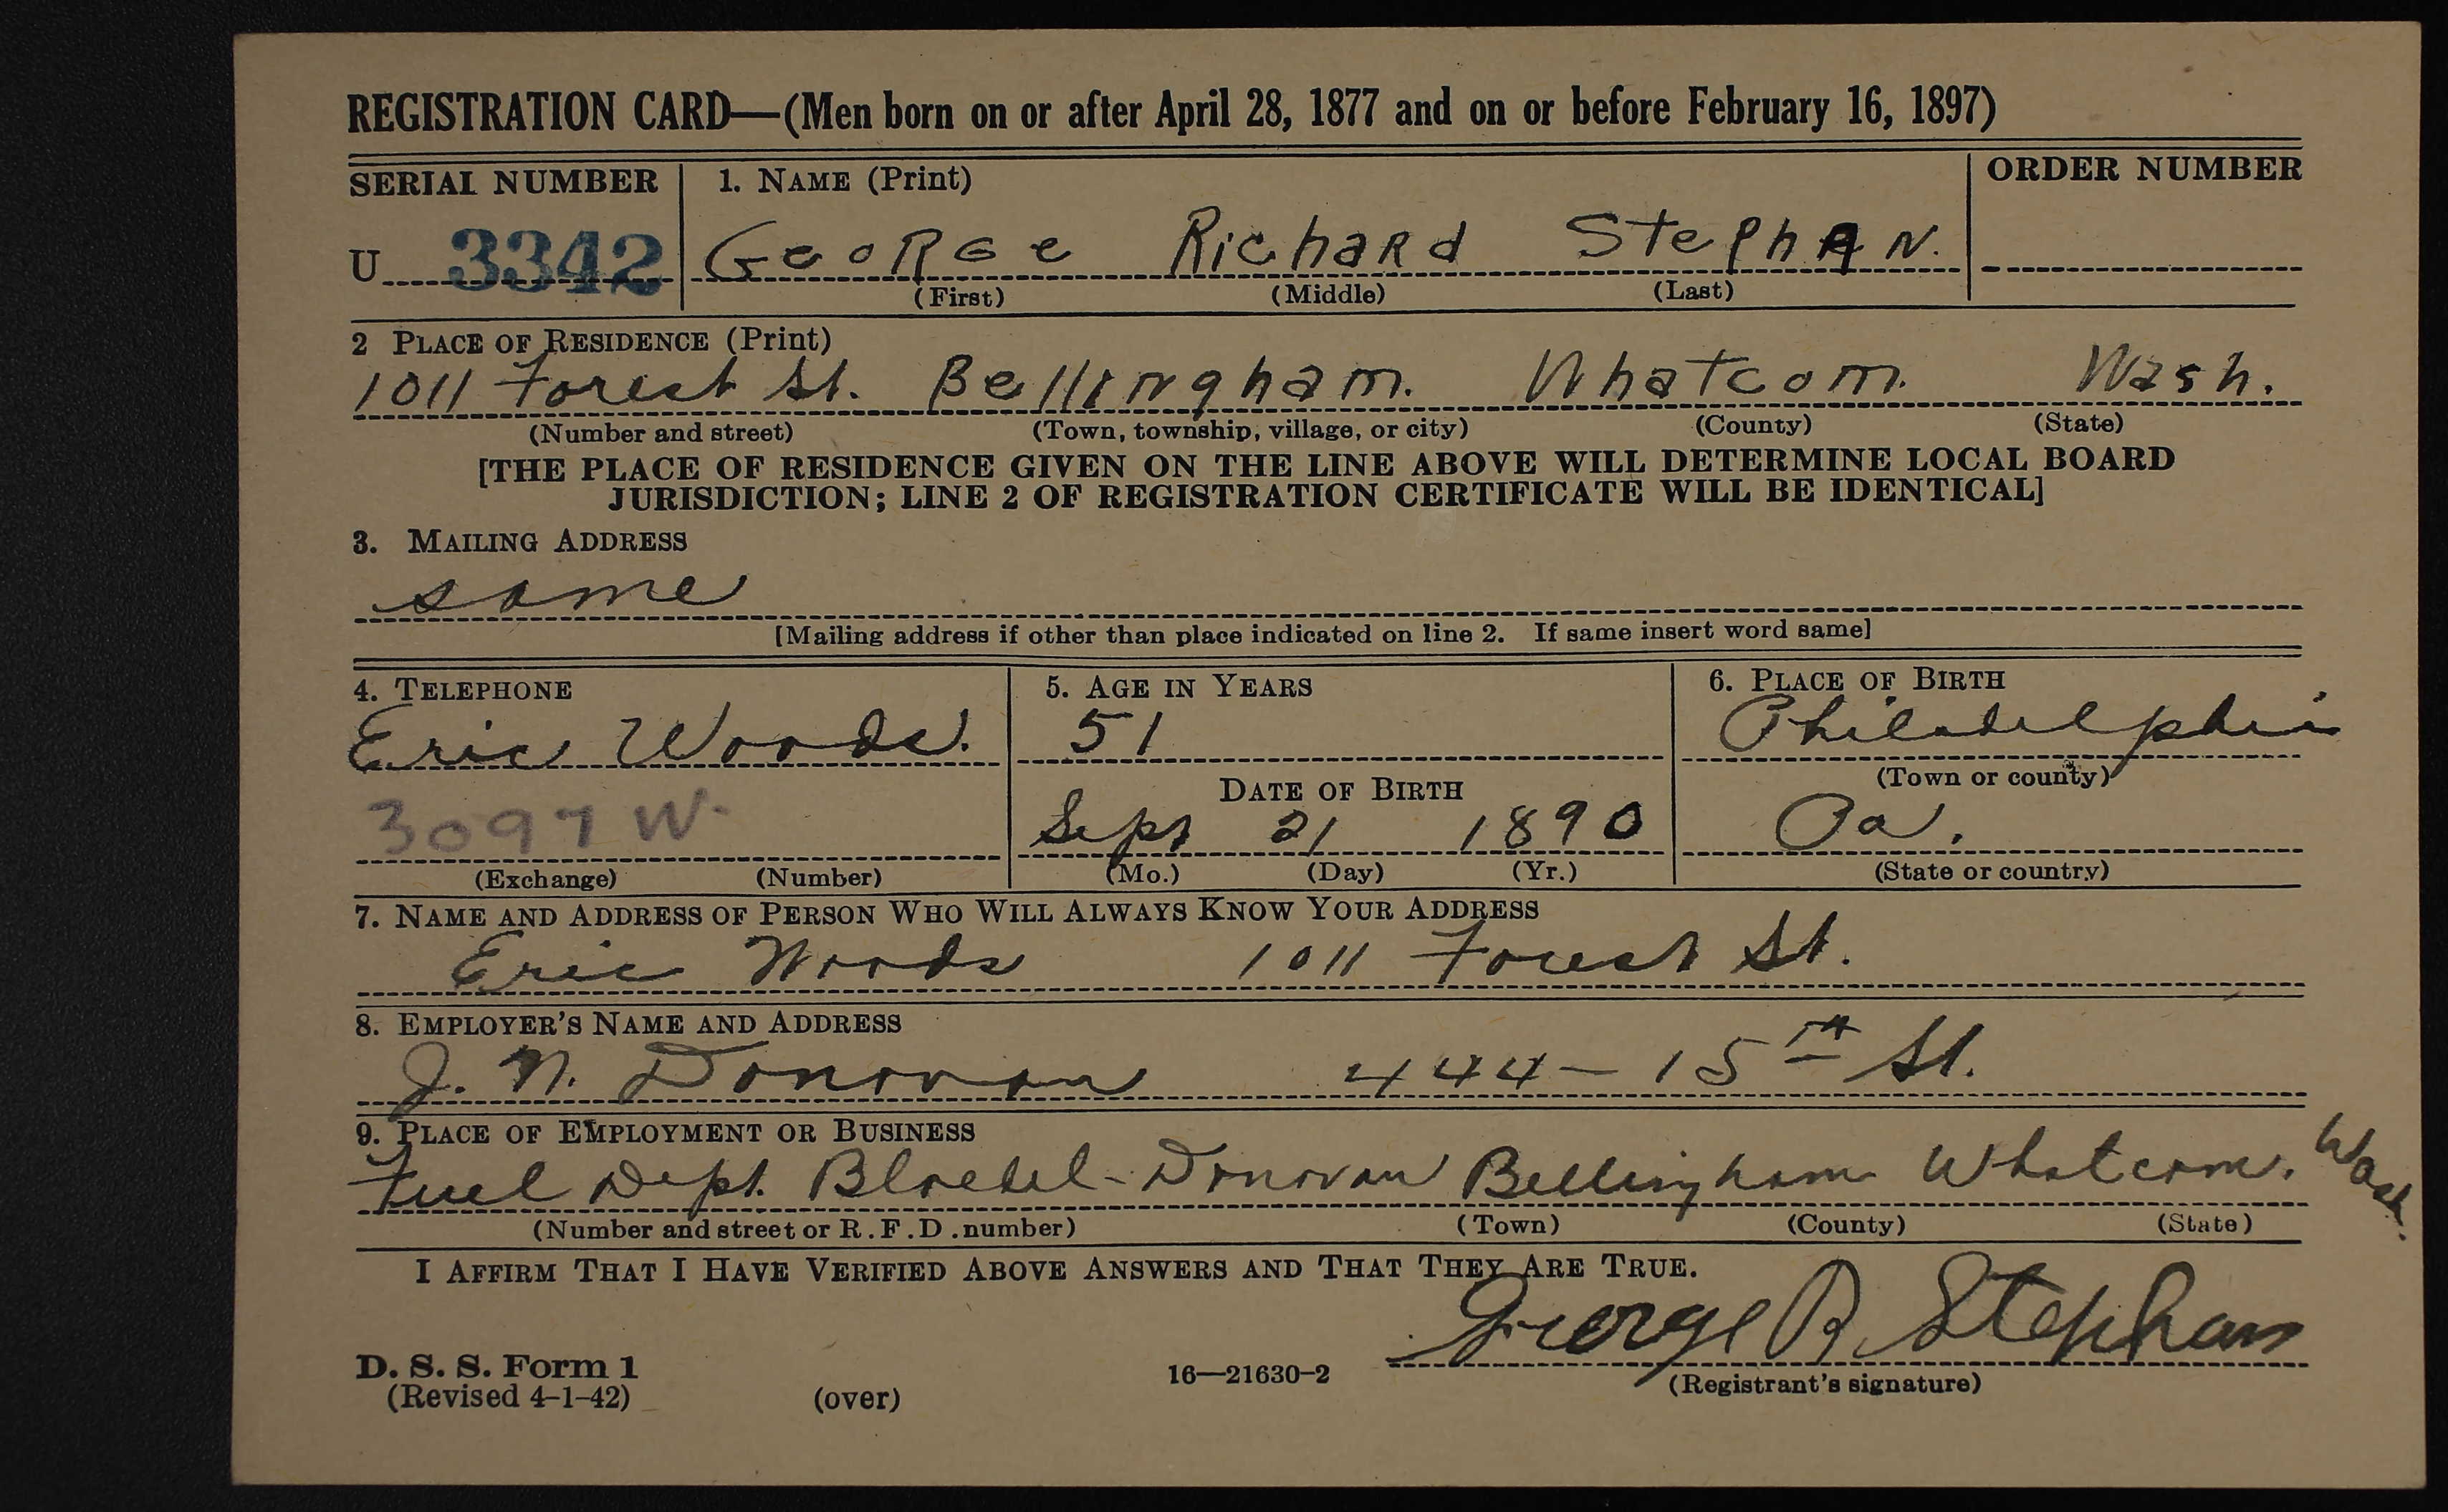 REGISTRATION CARD—(Men born on or after April 28, 1877 and on or before February 16, 1897)
SERIAL NUMBER 1. NAME (Print) ORDER NUMBER
U 3342 George Richard Stephan.
(First) (Middle) (Last)
2 PLACE OF RESIDENCE (Print)
1011 Forest St. Bellingham. Whatcom. Wash.
(Number and street) (Town, township, village, or city) (County) (State)
[THE PLACE OF RESIDENCE GIVEN ON THE LINE ABOVE WILL DETERMINE LOCAL BOARD
JURISDICTION; LINE 2 OF REGISTRATION CERTIFICATE WILL BE IDENTICAL]
3. MAILING ADDRESS
same
[Mailing address if other than place indicated on line 2. If same insert word same]
4. TELEPHONE 5. AGE IN YEARS 6. PLACE OF BIRTH
Eric Woods. 51 Philadelphia
(Town or county)
DATE OF BIRTH
3097 W. Sept 21 1890 Pa.
(Exchange) (Number) (Mo.) (Day) (Yr.) (State or country)
7. NAME AND ADDRESS OF PERSON WHO WILL ALWAYS KNOW YOUR ADDRESS
Eric Woods 1011 Forest St.
8. EMPLOYER'S NAME AND ADDRESS
J. N. Donovan 444 - 15th St.
9. PLACE OF EMPLOYMENT OR BUSINESS
Fuel Dept. Bloedel-Donovan Bellingham Whatcom. Wash.
(Number and street or R.F.D. number) (Town) (County) (State)
I AFFIRM THAT I HAVE VERIFIED ABOVE ANSWERS AND THAT THEY ARE TRUE.
George R Stephan
D. S. S. Form 1 16—21630-2 (Registrant's signature)
(Revised 4-1-42) (over)